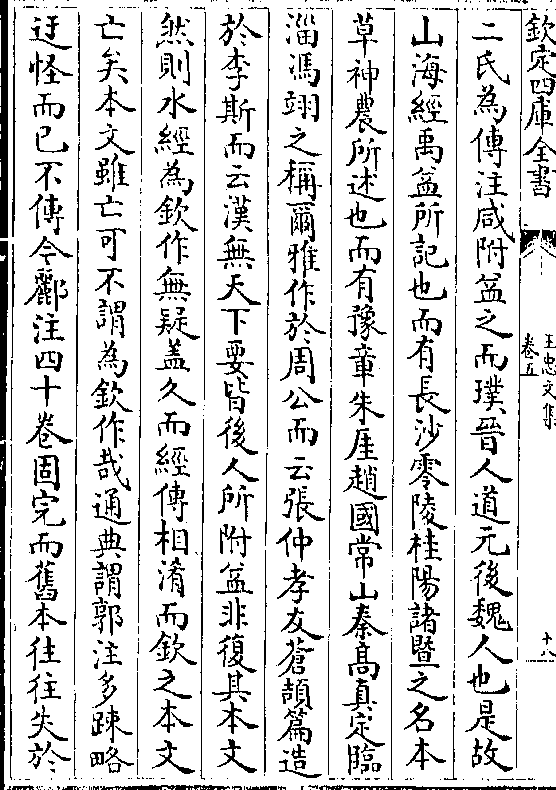 欽定四庫全書
王忠文集
卷五
十八
二氏為傳注咸附益之而璞晉人道元後魏人也是故
山海經禹益所記也而有長沙零陵桂陽諸暨之名本
草神農所述也而有豫章朱厓趙國常山秦高真定臨
淄馮翊之稱爾雅作於周公而云張仲孝友蒼頡篇造
於李斯而云漢無天下要皆後人所附益非復其本文
然則水經為欽作無疑蓋久而經傳相淆而欽之本文
亡矣本文雖亡可不謂為欽作哉通典謂郭注多踈略
迂怪而已不傳今酈注四十卷固完而舊本往往失於